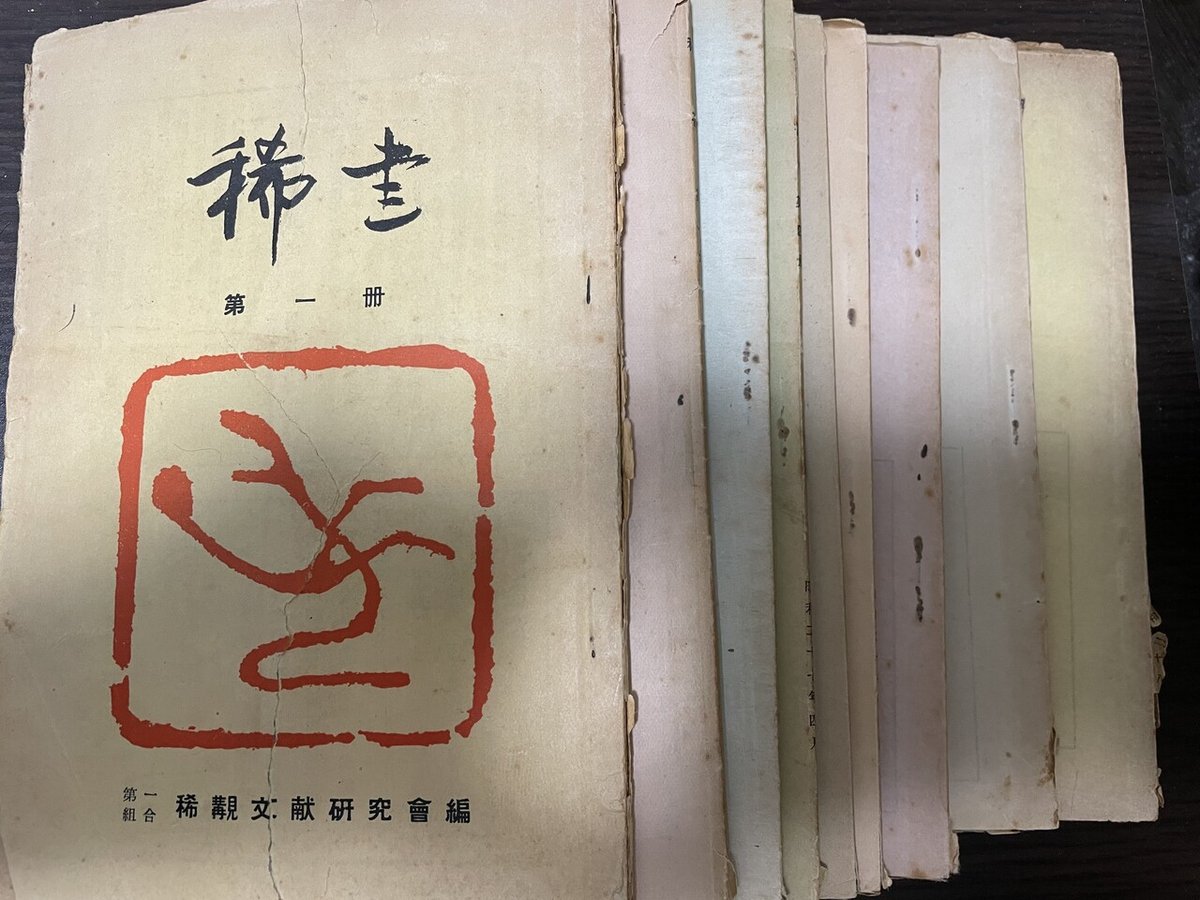 稀書
第一册
第一
組合
稀覯文献研究會編